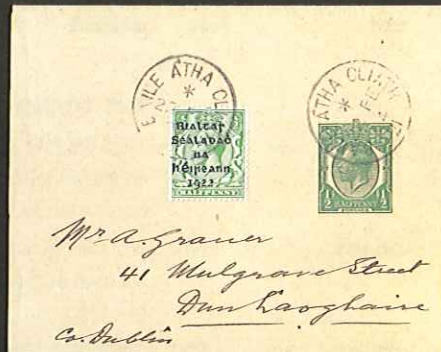 BAILE ÁTHA CLIATH
ÁTHA CLIATH
FE
Rialtas
Sealadac
na
hÉireann
1922
HALFPENNY
½ HALFPENNY ½
Mr A. Grauer
41 Mulgrave Street
Dun Laoghaire
Co. Dublin